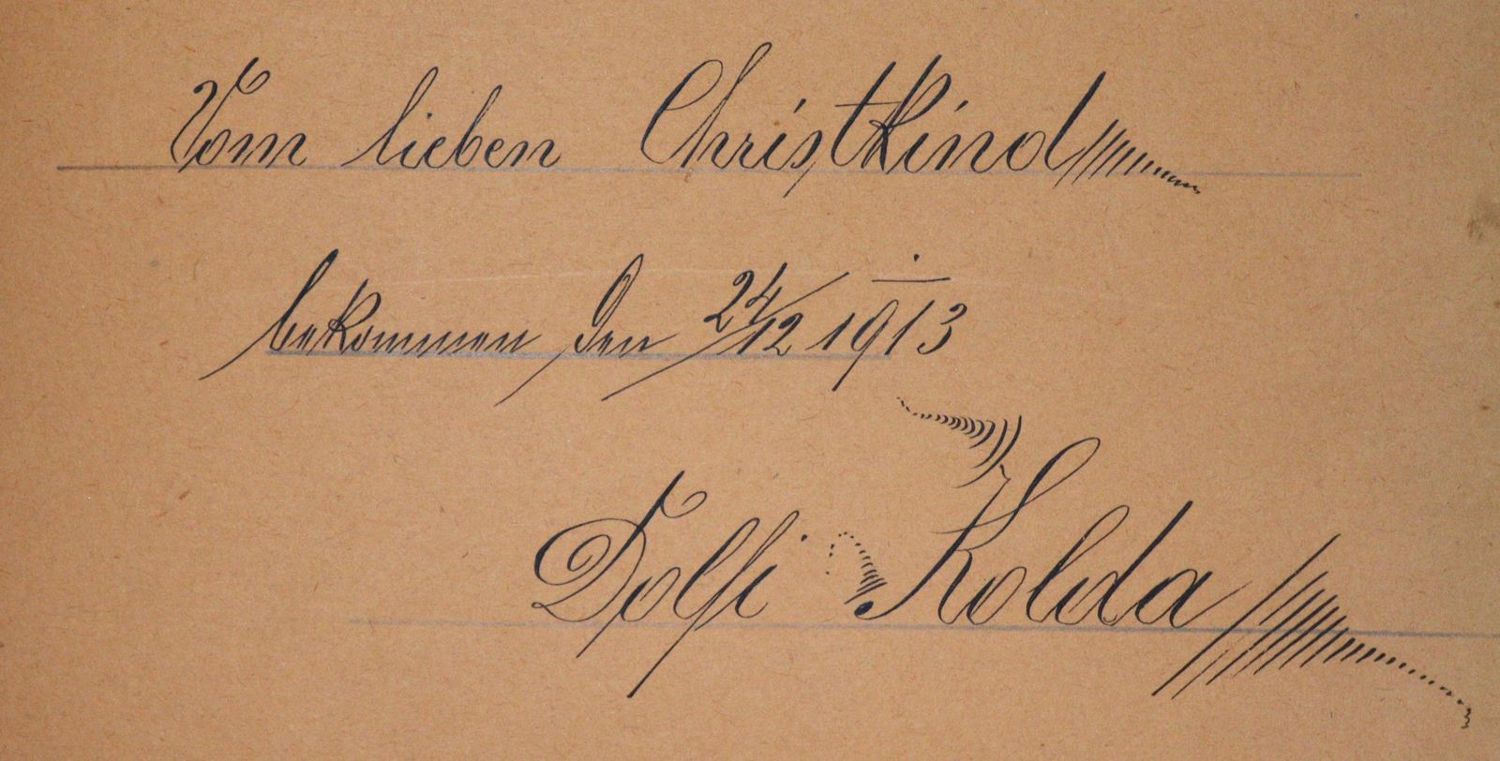 Vom lieben Christkind
bekommen den 24/12 1913
Dolfi Kolda